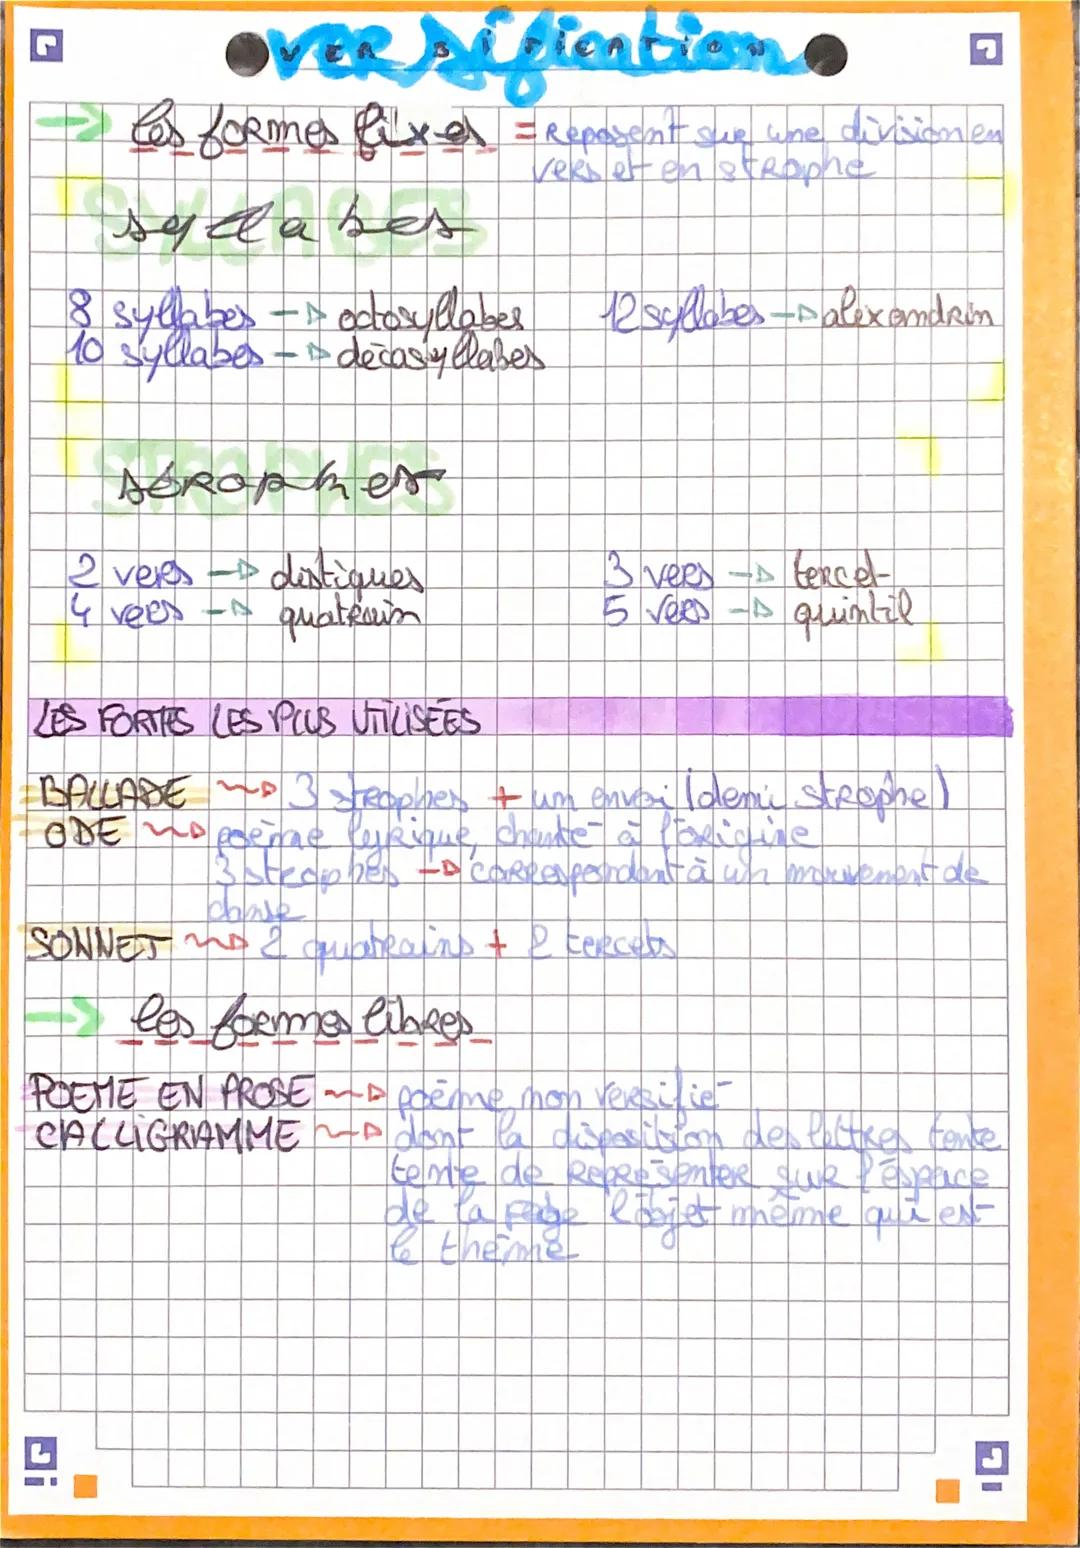 versification
VERSIFICATION
les formes fixes = Reposent sur une division en
vers et en strophe
SYLLABES
syllabes
8 syllabes → octosyllabes 12 syllabes → alexandrin
10 syllabes → décasyllabes
STROPHES
strophes
2 vers → distiques 3 vers → tercet
4 vers → quatrain 5 vers → quintil
LES FORMES LES PLUS UTILISÉES
BALLADE → 3 strophes + un envoi (demi strophe)
ODE → poème lyrique, chanté à l'origine
3 strophes → correspondant à un mouvement de
danse
SONNET → 2 quatrains + 2 tercets
les formes libres
POEME EN PROSE → poème non versifié
CALLIGRAMME → dont la disposition des lettres tente
tente de représenter sur l'espace
de la page l'objet même qui est
le thème